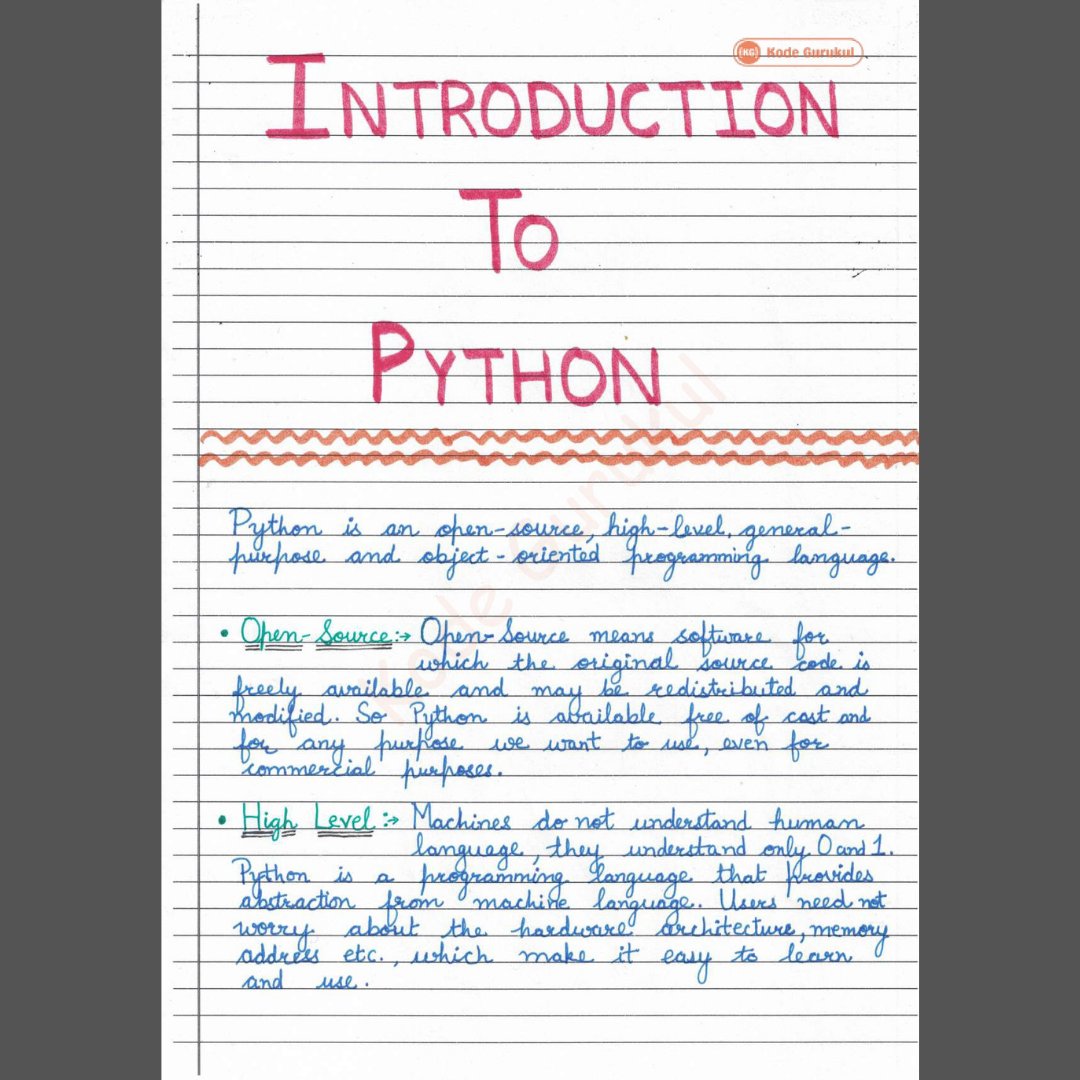 KG Kode Gurukul
INTRODUCTION
TO
PYTHON
Python is an open-source, high-level, general-
purpose and object-oriented programming language.
• Open-Source:→ Open-Source means software for
which the original source code is
freely available and may be redistributed and
modified. So Python is available free of cost and
for any purpose we want to use, even for
commercial purposes.
• High Level:→ Machines do not understand human
language, they understand only 0 and 1.
Python is a programming language that provides
abstraction from machine language. Users need not
worry about the hardware architecture, memory
address etc., which make it easy to learn
and use.
Kode Gurukul